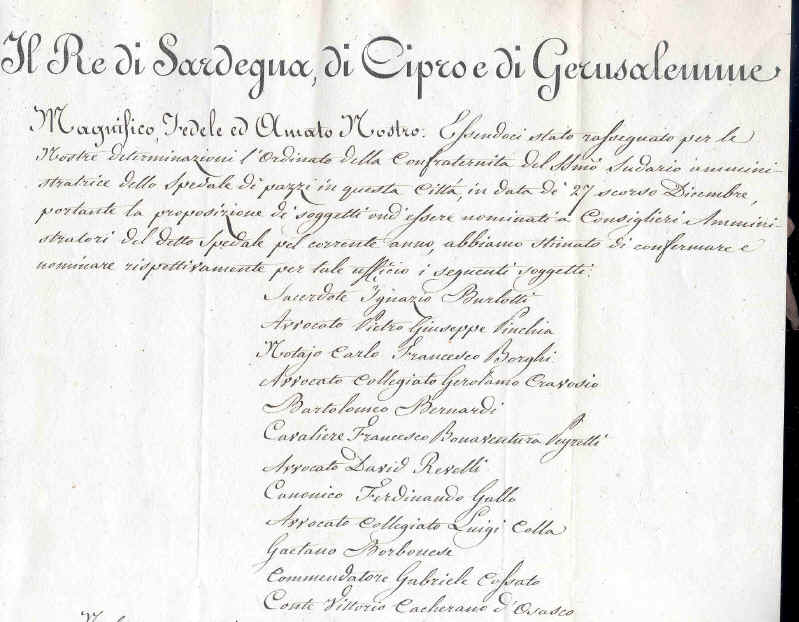 Il Re di Sardegna, di Cipro e di Gerusalemme
Magnifico, Fedele ed Amato Nostro: Essendoci stato rassegnato per le
Nostre determinazioni l'Ordinato della Confraternita del SSmo Sudario ammini-
stratrice dello Spedale di pazzi in questa Città, in data de' 27 scorso Dicembre,
portante la proposizione di soggetti ond'essere nominati a Consiglieri Ammini-
stratori del detto Spedale pel corrente anno, abbiamo stimato di confermare e
nominare rispettivamente per tale uffficio i seguenti soggetti:
Sacerdote Ignazio Burlotti
Avvocato Pietro Giuseppe Pinchia
Notajo Carlo Francesco Borghi
Avvocato Collegiato Gerolamo Cravosio
Bartolomeo Bernardi
Cavaliere Francesco Bonaventura Peyretti
Avvocato David Revelli
Canonico Ferdinando Gallo
Avvocato Collegiato Luigi Colla
Gaetano Borbonese
Commendatore Gabriele Cossato
Conte Vittorio Cacherano d'Osasco